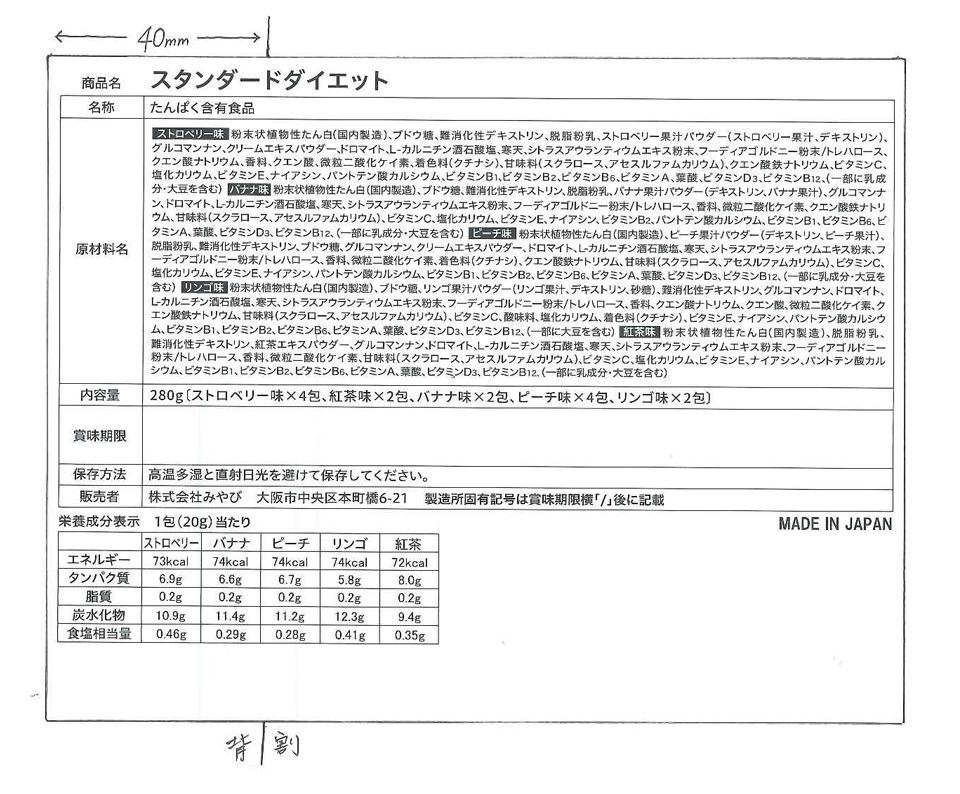 40mm
商品名 スタンダードダイエット
名称 たんぱく含有食品
原材料名
ストロベリー味 粉末状植物性たん白(国内製造)、ブドウ糖、難消化性デキストリン、脱脂粉乳、ストロベリー果汁パウダー(ストロベリー果汁、デキストリン)、
グルコマンナン、クリームエキスパウダー、ドロマイト、L-カルニチン酒石酸塩、寒天、シトラスアウランティウムエキス粉末、フーディアゴルドニー粉末/トレハロース、
クエン酸ナトリウム、香料、クエン酸、微粒二酸化ケイ素、着色料(クチナシ)、甘味料(スクラロース、アセスルファムカリウム)、クエン酸鉄ナトリウム、ビタミンC、
塩化カリウム、ビタミンE、ナイアシン、パントテン酸カルシウム、ビタミンB1、ビタミンB2、ビタミンB6、ビタミンA、葉酸、ビタミンD3、ビタミンB12、(一部に乳成
分・大豆を含む) バナナ味 粉末状植物性たん白(国内製造)、ブドウ糖、難消化性デキストリン、脱脂粉乳、バナナ果汁パウダー(デキストリン、バナナ果汁)、グルコマンナ
ン、ドロマイト、L-カルニチン酒石酸塩、寒天、シトラスアウランティウムエキス粉末、フーディアゴルドニー粉末/トレハロース、香料、微粒二酸化ケイ素、クエン酸鉄ナトリ
ウム、甘味料(スクラロース、アセスルファムカリウム)、ビタミンC、塩化カリウム、ビタミンE、ナイアシン、ビタミンB2、パントテン酸カルシウム、ビタミンB1、ビタミンB6、ビ
タミンA、葉酸、ビタミンD3、ビタミンB12、(一部に乳成分・大豆を含む) ピーチ味 粉末状植物性たん白(国内製造)、ピーチ果汁パウダー(デキストリン、ピーチ果汁)、
脱脂粉乳、難消化性デキストリン、ブドウ糖、グルコマンナン、クリームエキスパウダー、ドロマイト、L-カルニチン酒石酸塩、寒天、シトラスアウランティウムエキス粉末、フ
ーディアゴルドニー粉末/トレハロース、香料、微粒二酸化ケイ素、着色料(クチナシ)、クエン酸鉄ナトリウム、甘味料(スクラロース、アセスルファムカリウム)、ビタミンC、
塩化カリウム、ビタミンE、ナイアシン、パントテン酸カルシウム、ビタミンB1、ビタミンB2、ビタミンB6、ビタミンA、葉酸、ビタミンD3、ビタミンB12、(一部に乳成分・大豆を
含む) リンゴ味 粉末状植物性たん白(国内製造)、ブドウ糖、リンゴ果汁パウダー(リンゴ果汁、デキストリン、砂糖)、難消化性デキストリン、グルコマンナン、ドロマイト、
L-カルニチン酒石酸塩、寒天、シトラスアウランティウムエキス粉末、フーディアゴルドニー粉末/トレハロース、香料、クエン酸ナトリウム、クエン酸、微粒二酸化ケイ素、ク
エン酸鉄ナトリウム、甘味料(スクラロース、アセスルファムカリウム)、ビタミンC、酸味料、塩化カリウム、着色料(クチナシ)、ビタミンE、ナイアシン、パントテン酸カルシウ
ム、ビタミンB1、ビタミンB2、ビタミンB6、ビタミンA、葉酸、ビタミンD3、ビタミンB12、(一部に大豆を含む) 紅茶味 粉末状植物性たん白(国内製造)、脱脂粉乳、
難消化性デキストリン、紅茶エキスパウダー、グルコマンナン、ドロマイト、L-カルニチン酒石酸塩、寒天、シトラスアウランティウムエキス粉末、フーディアゴルドニー
粉末/トレハロース、香料、微粒二酸化ケイ素、甘味料(スクラロース、アセスルファムカリウム)、ビタミンC、塩化カリウム、ビタミンE、ナイアシン、パントテン酸カル
シウム、ビタミンB1、ビタミンB2、ビタミンB6、ビタミンA、葉酸、ビタミンD3、ビタミンB12、(一部に乳成分・大豆を含む)
内容量 280g〔ストロベリー味×4包、紅茶味×2包、バナナ味×2包、ピーチ味×4包、リンゴ味×2包〕
賞味期限
保存方法 高温多湿と直射日光を避けて保存してください。
販売者 株式会社みやび 大阪市中央区本町橋6-21 製造所固有記号は賞味期限横「/」後に記載
栄養成分表示 1包(20g)当たり
MADE IN JAPAN
ストロベリー バナナ ピーチ リンゴ 紅茶
エネルギー 73kcal 74kcal 74kcal 74kcal 72kcal
タンパク質 6.9g 6.6g 6.7g 5.8g 8.0g
脂質 0.2g 0.2g 0.2g 0.2g 0.2g
炭水化物 10.9g 11.4g 11.2g 12.3g 9.4g
食塩相当量 0.46g 0.29g 0.28g 0.41g 0.35g
背 割